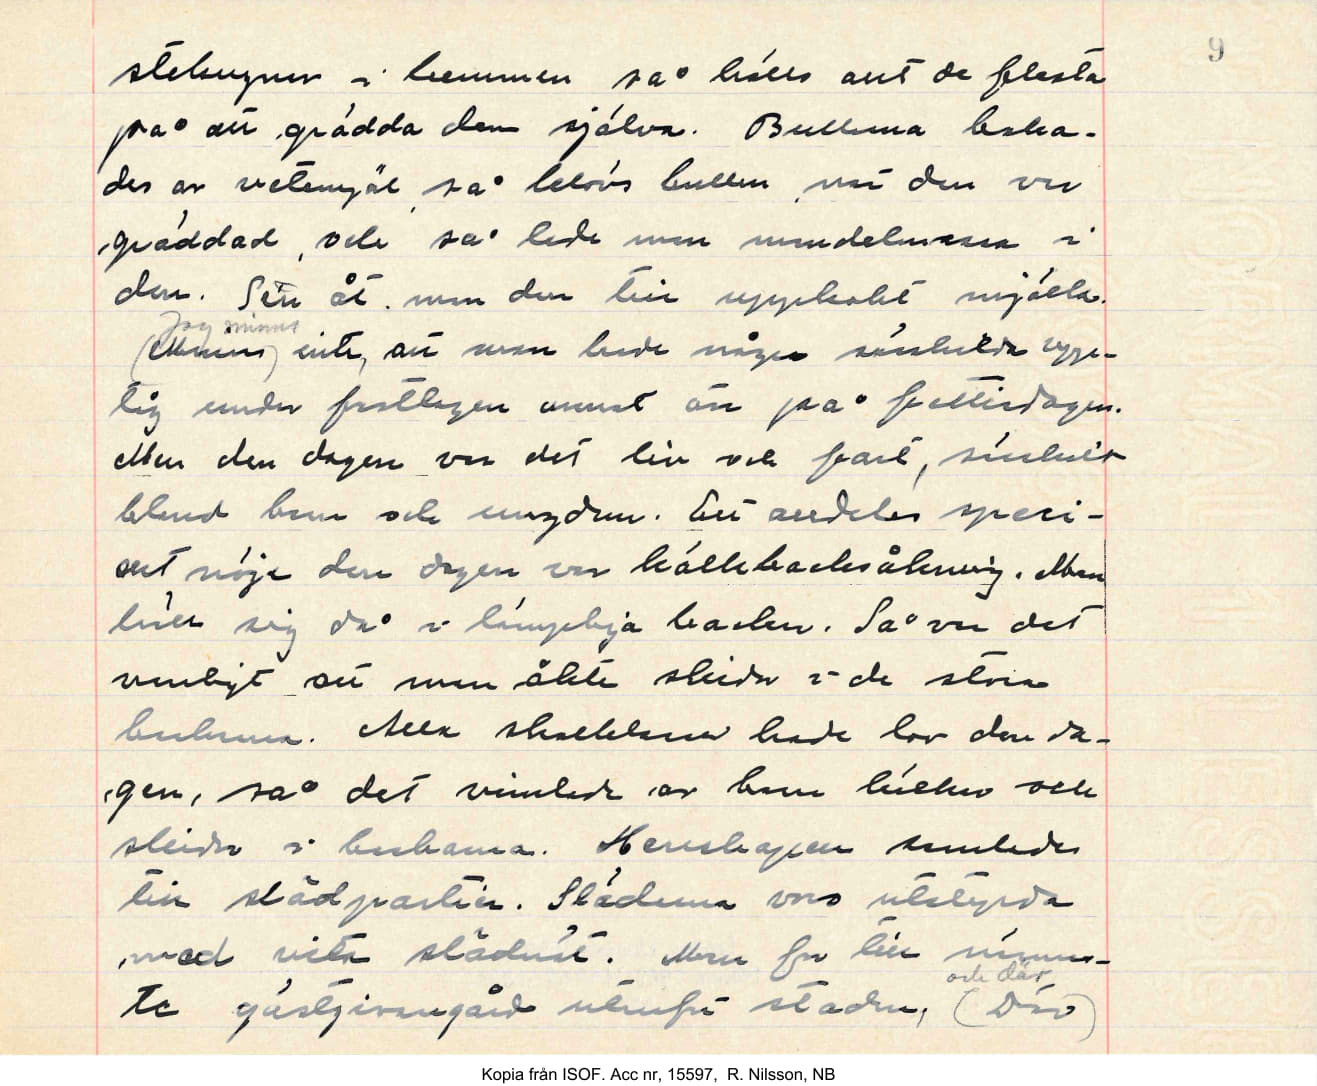 9
stekugnar i hemmen så hölls ant de flesta
på att grädda dem själva. Bullarna baka-
des av vetemjöl, så klövs bullen när den var
gräddad, och så lade man mandelmassa i
den. Sen åt man den till uppkokt mjölk.
Jag minns
(Minns) inte, att man hade någon särskilda upp-
tåg under fastlagen annat än på fettisdagen.
Men den dagen var det liv och fart, särskilt
bland barn och ungdom. Ett alldeles speci-
ellt nöje den dagen var kälkbacksåkning. Man
höll sig då i långehja backen. Så var det
vanligt att man åkte skidor i de stora
backarna. Alla skolklasser hade lov den da-
gen, så det vimlade av barn kälkar och
skidor i backarna. Herrskapen samlades
till slädpartier. Slädarna voro utstyrda
med vita slädnät. Man for till närmas-
te gästgivaregård utanför staden,
och där
(Där)
Kopia från ISOF. Acc nr, 15597, R. Nilsson, NB